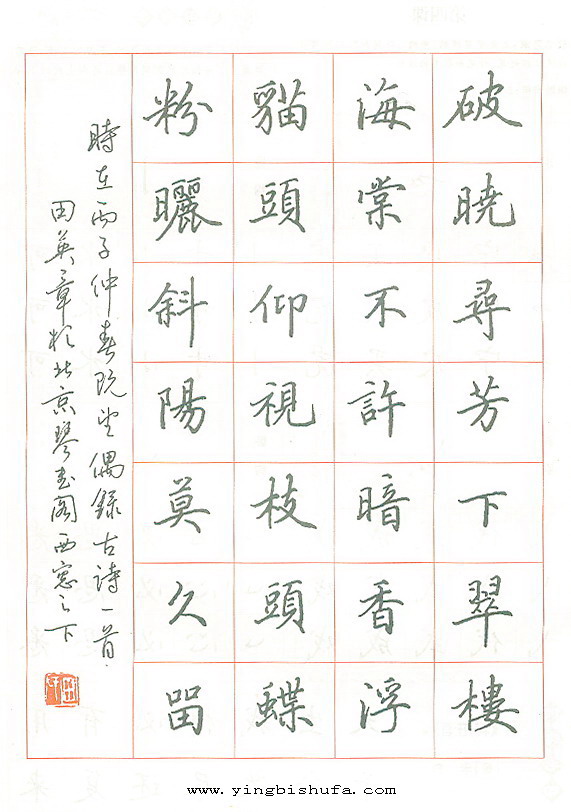 破曉尋芳下翠樓
海棠不許暗香浮
貓頭仰視枝頭蝶
粉曬斜陽莫久留
時在丙子仲春既望偶錄古詩一首
田英章於北京琴書閣西窗之下
www.yingbishufa.com